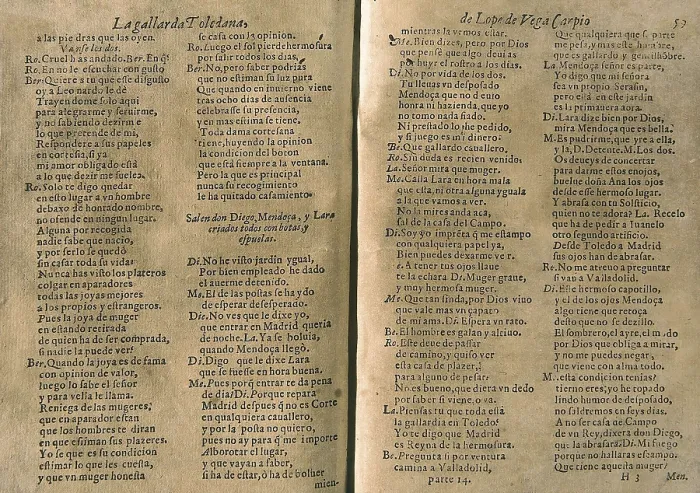 La gallarda Toledana,
a las piedras que las oyen.
Vanse los dos.
Ro. Cruel has andado. Ber. En q?
Ro. En no le escuchar con gusto
Ber. Quieres tu que esse disgusto
oy a Leonardo le dè
Trayendome solo aqui
para alegrarme y seruirme,
y no sabiendo dezirme
lo que pretende de mi,
Respondere a sus papeles
en cortesia, si ya
mi amor obligado està
a lo que dezir me sueles.
Ro. Solo te digo quedar
en esto lugar a vn hombre
debaxo de honrado nombre,
no ofende en ningun lugar.
Alguna por recogida
nadie sabe que nacio,
y por serlo se quedò
sin casar toda su vida:
Nunca has visto los plateros
colgar en aparadores
todas las joyas mejores
a los propios y estrangeros.
Pues la joya de muger
en estando retirada
de quien ha de ser comprada,
si nadie la puede ver?
Ber. Quando la joya es de fama
con opinion de valor,
luego lo sabe el señor
y para vella le llama.
Reniega de las mugeres,
que en aparador estan
que los hombres te diran
en que estiman sus plazeres.
Yo se que es su condicion
estimar lo que les cuesta,
y que vn muger honesta
se casa con la opinion.
Ro. Luego el sol pierde hermosura
por salir todos los dias,
Ber. No, pero saber podrias
que no estiman su luz pura
Que quando en inuierno viene
tras ocho dias de ausencia
celebrasse su presencia,
y en mas estima se tiene.
Toda dama cortesana
tiene, huyendo la opinion
la condicion del boton
que està siempre a la ventana.
Pero la que es principal
nunca su recogimiento
le ha quitado casamiento
Salen don Diego, Mendoça, y Lara
criados todos con botas, y
espuelas.
Di. No he visto jardin ygual,
Por bien empleado he dado
el auerme detenido.
Me. El de las postas se ha ydo
de esperar desesperado.
Die. No ves que le dixe yo,
que entrar en Madrid queria
de noche. La. Ya se boluia,
quando Mendoça llegò.
Di. Digo que le dixe Lara
que se fuesse en hora buena.
Me. Pues porq̃ entrar te da pena
de dia? Di. Porque repara
Madrid despues q̃ no es Corte
en qualquiera cauallero,
y por la posta no quiero,
pues no ay para q̃ me importe
Alborotar el lugar,
y que vayan a saber,
si ha de estar, ò ha de boluer
mien-
de Lope de Vega Carpio 59
mientras la vemos estar.
Me. Bien dizes, pero por Dios
que pensè que algo deuias
por huyr el rostro a los dias.
Di. No por vida de los dos.
Tu lleuas vn desposado
Mendoça que no deuio
honra ni hazienda, que yo
no tomo nada fiado.
Ni prestado lo he pedido,
y si juego es mi dinero.
Be. Que gallardo cauallero.
Ro. Sin duda es recien venido.
La. Señor mira que muger.
Me. Calla Lara en hora mala
que esta, ni otra alguna yguala
a la que vamos a ver.
No la mires anda aca,
sal de la casa del Campo.
Di. Soy yo imprẽta q̃ me estampo
con qualquiera papel ya,
Bien puedes dexarme ver.
A tener tus ojos llaue
te la echara Di. Muger graue,
y muy hermosa muger.
Me. Que tan linda, por Dios vino
que vale mas vn çapato
de mi ama. Di. Espera vn rato.
Be. El hombre es galan y altiuo.
Ro. Este deue de passar
de camino, y quiso ver
esta casa de plazer,
para alguno de pesar:
No es bueno, que dera vn dedo
por saber si viene, o va.
La. Piensas tu que toda està
la gallardia en Toledo?
Yo te digo que Madrid
es Reyna de la hermosura.
Be. Pregunta si por ventura
camina a Valladolid,
parte 14.
Que qualquiera que se parte
me pesa, y mas este hombre,
que es gallardo y gentilhombre.
La. Mendoça señor es parte,
Yo digo que mi señora
sea vn propio Serafin,
pero ella en este jardin
es la primauera aora.
Di. Lara dize bien por Dios,
mira Mendoça que es bella.
M. Es pudrirme, que yre a ella,
y la, D. Detente. M. Los dos.
Os deueys de concertar
para darme estos enojos,
buelue doña Ana los ojos
desde esse hermoso lugar.
Y abrasa con tu Solsticio,
quien no te adora? La. Recelo
que ha de pedir a Iuanelo
otro segundo artificio.
Desde Toledo a Madrid
sus ojos han de abrasar.
Re. No me atreuo a preguntar
si va a Valladolid.
Di. Esse hermoso capotillo,
y el de los ojos Mendoça
algo tiene que retoça
desto que no se dezillo.
El sombrero, el ayre, el modo
por Dios que obliga a mirar,
y no me puedes negar,
que viene con alma todo.
M. esta condicion tenias?
tierno eres, yo he topado
lindo humor de desposado,
no saldremos en seys dias.
A no ser casa de Campo
de vn Rey, dixera don Diego,
qui la abrasara? Di. Mi fuego
porque no hallaras escampo.
Que tiene aquella muger?
H 3 Men.